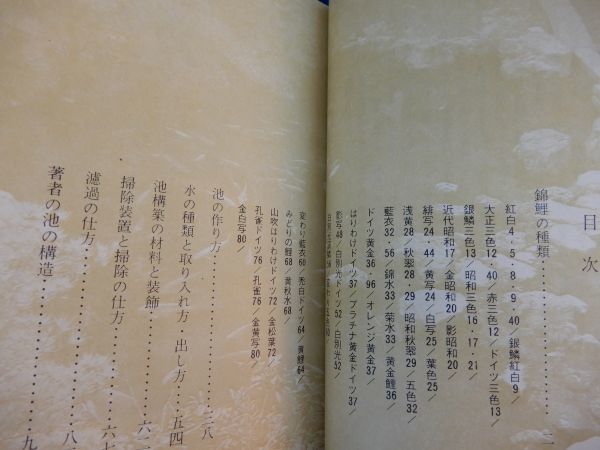 目次
錦鯉の種類…………二
紅白4・5・8・9・40／銀鱗紅白9／
大正三色12・40／赤三色12／ドイツ三色13／
銀鱗三色13／昭和三色16・17・21／
近代昭和17／金昭和20／影昭和20／
緋写24・44／黄写24／白写25／葉色25／
浅黄28／秋翠28・29／昭和秋翠29／五色32／
藍衣32・56／錦水33／菊水33／黄金鯉36／
ドイツ黄金36・96／オレンジ黄金37／
はりわけドイツ37／プラチナ黄金ドイツ37／
影写48／白別光ドイツ52／白別光52／
変わり藍衣60／禿白ドイツ64／黄鯉64／
みどりの鯉68／黄秋水68／
山吹はりわけドイツ72／金松葉72／
孔雀ドイツ76／孔雀76／金黄写80／
金白写80／
池の作り方…………三八
水の種類と取り入れ方 出し方……五四
池構築の材料と装飾…………六二
掃除装置と掃除の仕方…………六七
濾過の仕方…………八
著者の池の構造…………九